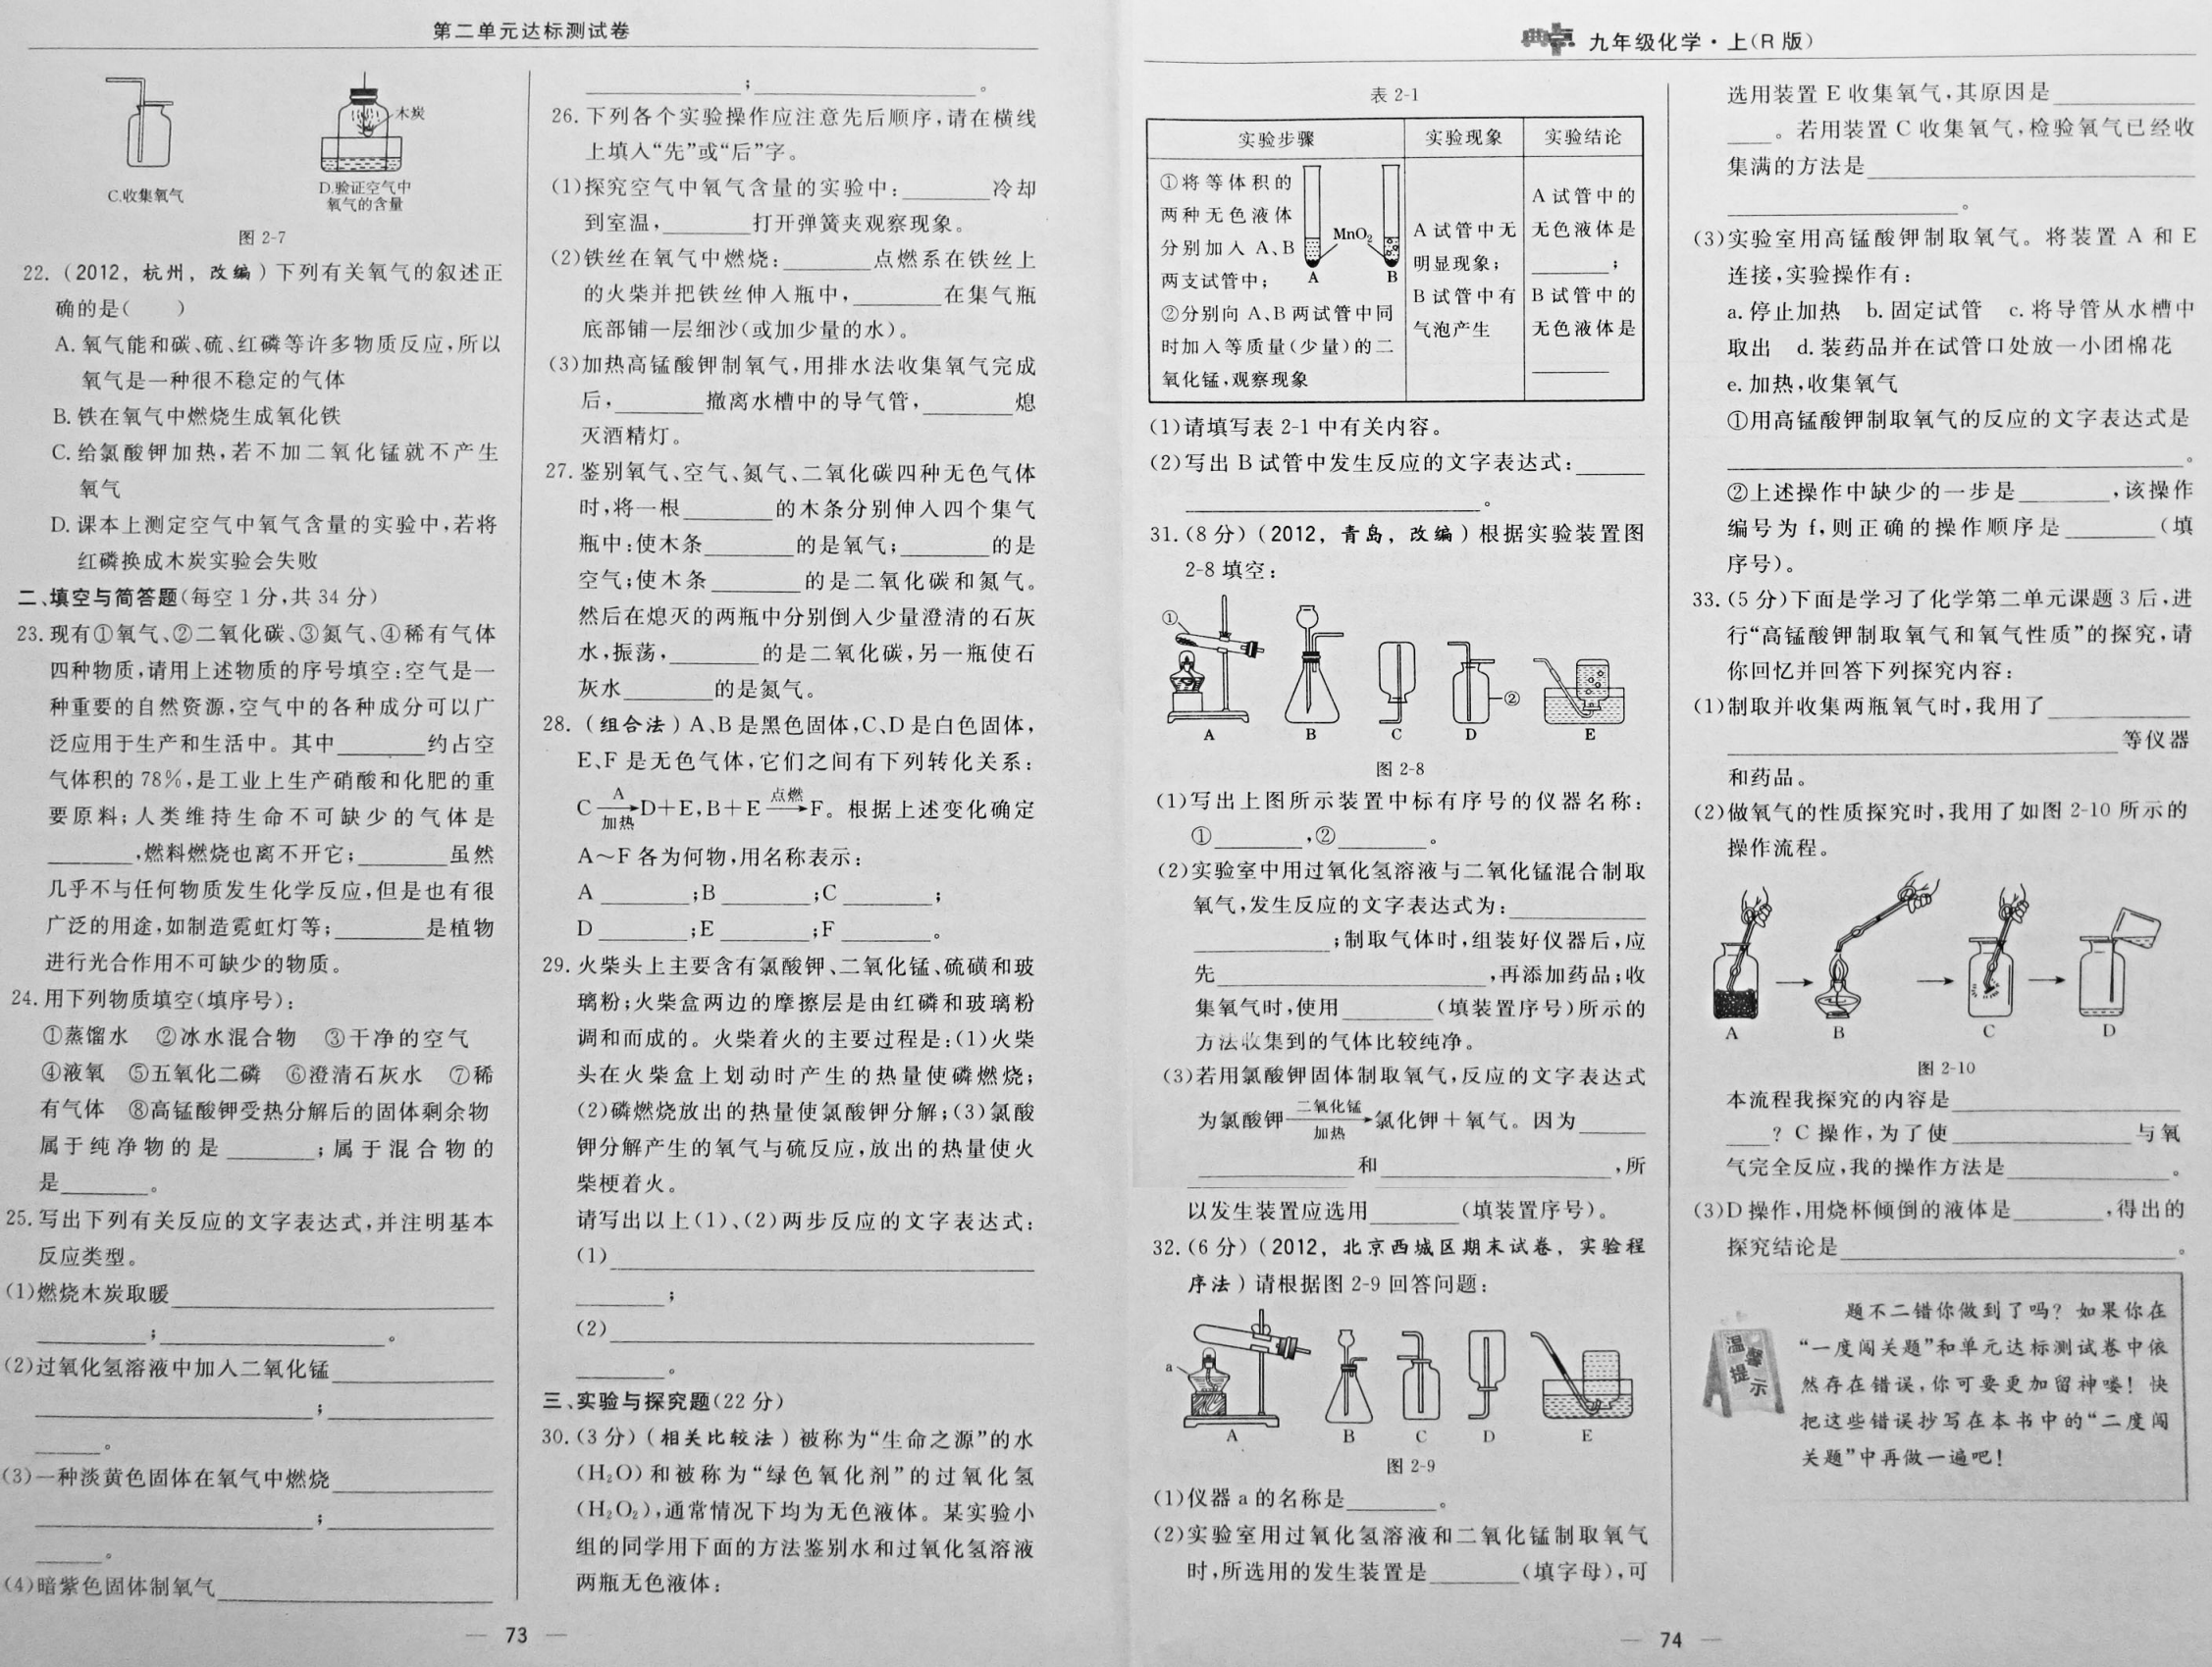 第二单元达标测试卷
C.收集氧气
木炭
D.验证空气中
氧气的含量
图 2-7
22.(2012,杭州,改编)下列有关氧气的叙述正
确的是(　　)
A. 氧气能和碳、硫、红磷等许多物质反应,所以
氧气是一种很不稳定的气体
B. 铁在氧气中燃烧生成氧化铁
C. 给氯酸钾加热,若不加二氧化锰就不产生
氧气
D. 课本上测定空气中氧气含量的实验中,若将
红磷换成木炭实验会失败
二、填空与简答题(每空 1 分,共 34 分)
23. 现有①氧气、②二氧化碳、③氮气、④稀有气体
四种物质,请用上述物质的序号填空:空气是一
种重要的自然资源,空气中的各种成分可以广
泛应用于生产和生活中。其中________约占空
气体积的 78%,是工业上生产硝酸和化肥的重
要原料;人类维持生命不可缺少的气体是
________,燃料燃烧也离不开它;________虽然
几乎不与任何物质发生化学反应,但是也有很
广泛的用途,如制造霓虹灯等;________是植物
进行光合作用不可缺少的物质。
24. 用下列物质填空(填序号):
①蒸馏水　②冰水混合物　③干净的空气
④液氧　⑤五氧化二磷　⑥澄清石灰水　⑦稀
有气体　⑧高锰酸钾受热分解后的固体剩余物
属于纯净物的是________;属于混合物的
是________。
25. 写出下列有关反应的文字表达式,并注明基本
反应类型。
(1)燃烧木炭取暖________
________;________。
(2)过氧化氢溶液中加入二氧化锰________
________;________
________。
(3)一种淡黄色固体在氧气中燃烧________
________;________
________。
(4)暗紫色固体制氧气________
________;________。
26. 下列各个实验操作应注意先后顺序,请在横线
上填入“先”或“后”字。
(1)探究空气中氧气含量的实验中:________冷却
到室温,________打开弹簧夹观察现象。
(2)铁丝在氧气中燃烧:________点燃系在铁丝上
的火柴并把铁丝伸入瓶中,________在集气瓶
底部铺一层细沙(或加少量的水)。
(3)加热高锰酸钾制氧气,用排水法收集氧气完成
后,________撤离水槽中的导气管,________熄
灭酒精灯。
27. 鉴别氧气、空气、氮气、二氧化碳四种无色气体
时,将一根________的木条分别伸入四个集气
瓶中:使木条________的是氧气;________的是
空气;使木条________的是二氧化碳和氮气。
然后在熄灭的两瓶中分别倒入少量澄清的石灰
水,振荡,________的是二氧化碳,另一瓶使石
灰水________的是氮气。
28.(组合法)A、B是黑色固体,C、D是白色固体,
E、F 是无色气体,它们之间有下列转化关系:
C —A/加热→ D+E,B+E —点燃→ F。根据上述变化确定
A～F 各为何物,用名称表示:
A ________;B ________;C ________;
D ________;E ________;F ________。
29. 火柴头上主要含有氯酸钾、二氧化锰、硫磺和玻
璃粉;火柴盒两边的摩擦层是由红磷和玻璃粉
调和而成的。火柴着火的主要过程是:(1)火柴
头在火柴盒上划动时产生的热量使磷燃烧;
(2)磷燃烧放出的热量使氯酸钾分解;(3)氯酸
钾分解产生的氧气与硫反应,放出的热量使火
柴梗着火。
请写出以上(1)、(2)两步反应的文字表达式:
(1)________
________;
(2)________
________。
三、实验与探究题(22 分)
30.(3 分)(相关比较法)被称为“生命之源”的水
(H₂O)和被称为“绿色氧化剂”的过氧化氢
(H₂O₂),通常情况下均为无色液体。某实验小
组的同学用下面的方法鉴别水和过氧化氢溶液
两瓶无色液体:
— 73 —
典点 九年级化学·上(R 版)
表 2-1
实验步骤 实验现象 实验结论
①将等体积的
两种无色液体
分别加入 A、B
两支试管中;
②分别向 A、B 两试管中同
时加入等质量(少量)的二
氧化锰,观察现象
MnO₂
A B
A 试管中无
明显现象;
B 试管中有
气泡产生
A 试管中的
无色液体是
________;
B 试管中的
无色液体是
________
(1)请填写表 2-1 中有关内容。
(2)写出 B 试管中发生反应的文字表达式:________
________。
31.(8 分)(2012,青岛,改编)根据实验装置图
2-8 填空:
①
②
A B C D E
图 2-8
(1)写出上图所示装置中标有序号的仪器名称:
①________,②________。
(2)实验室中用过氧化氢溶液与二氧化锰混合制取
氧气,发生反应的文字表达式为:________
________;制取气体时,组装好仪器后,应
先________,再添加药品;收
集氧气时,使用________(填装置序号)所示的
方法收集到的气体比较纯净。
(3)若用氯酸钾固体制取氧气,反应的文字表达式
为氯酸钾 —二氧化锰/加热→ 氯化钾+氧气。因为________
________和________,所
以发生装置应选用________(填装置序号)。
32.(6 分)(2012,北京西城区期末试卷,实验程
序法)请根据图 2-9 回答问题:
a
A B C D E
图 2-9
(1)仪器 a 的名称是________。
(2)实验室用过氧化氢溶液和二氧化锰制取氧气
时,所选用的发生装置是________(填字母),可
选用装置 E 收集氧气,其原因是________
____。若用装置 C 收集氧气,检验氧气已经收
集满的方法是________
________。
(3)实验室用高锰酸钾制取氧气。将装置 A 和 E
连接,实验操作有:
a. 停止加热　b. 固定试管　c. 将导管从水槽中
取出　d. 装药品并在试管口处放一小团棉花
e. 加热,收集氧气
①用高锰酸钾制取氧气的反应的文字表达式是
________。
②上述操作中缺少的一步是________,该操作
编号为 f,则正确的操作顺序是________(填
序号)。
33.(5 分)下面是学习了化学第二单元课题 3 后,进
行“高锰酸钾制取氧气和氧气性质”的探究,请
你回忆并回答下列探究内容:
(1)制取并收集两瓶氧气时,我用了________
________等仪器
和药品。
(2)做氧气的性质探究时,我用了如图 2-10 所示的
操作流程。
A B C D
图 2-10
本流程我探究的内容是________
____? C 操作,为了使________与氧
气完全反应,我的操作方法是________。
(3)D 操作,用烧杯倾倒的液体是________,得出的
探究结论是________。
温馨
提示
题不二错你做到了吗? 如果你在
“一度闯关题”和单元达标测试卷中依
然存在错误,你可要更加留神喽! 快
把这些错误抄写在本书中的“二度闯
关题”中再做一遍吧!
— 74 —